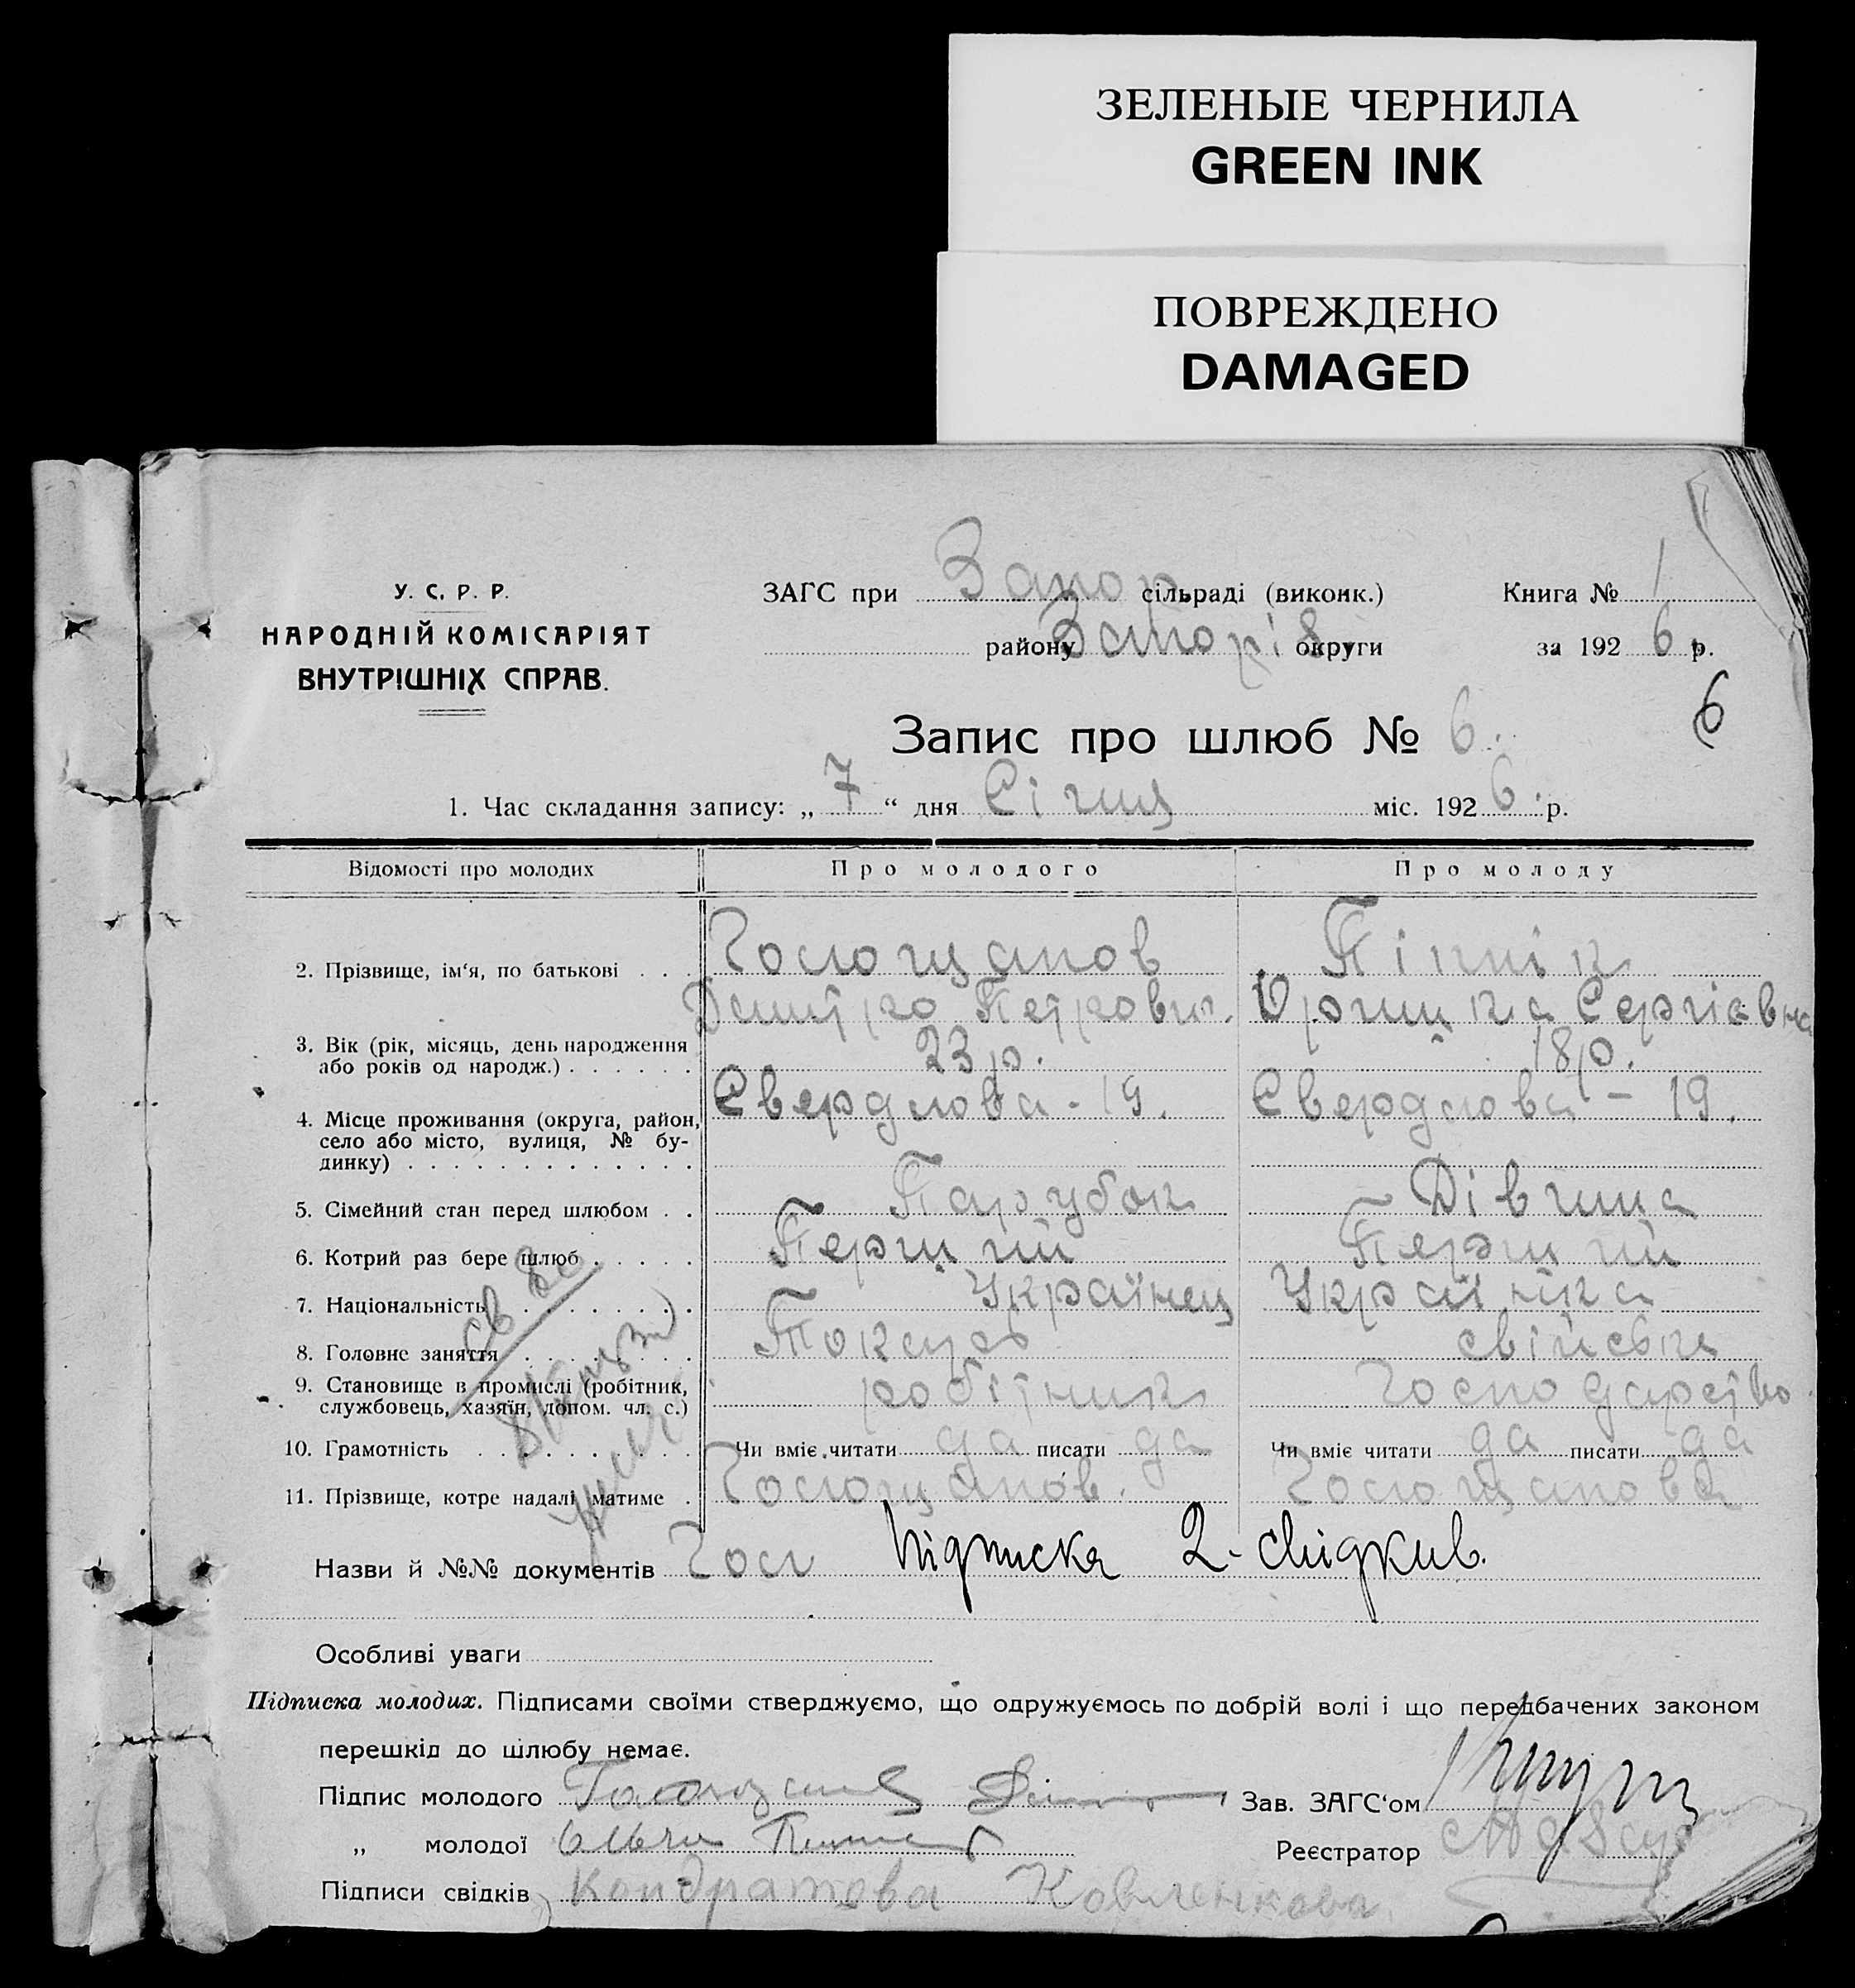 ЗЕЛЕНЫЕ ЧЕРНИЛА
GREEN INK
ПОВРЕЖДЕНО
DAMAGED
У. С. Р. Р.
НАРОДНІЙ КОМІСАРІЯТ
ВНУТРІШНІХ СПРАВ.
ЗАГС при Запор сільраді (виконк.) Книга № 1
району Запоріз. округи за 192 6 р.
6
Запис про шлюб № 6.
1. Час складання запису: „ 7 “ дня Січня міс. 192 6. р.
Відомості про молодих Про молодого Про молоду
2. Прізвище, ім‘я, по батькові . . . Голощапов
Дмитро Петрович. Сергієвна
3. Вік (рік, місяць, день народження
або років од народж.) . . . . . . 23 р. 18 р.
4. Місце проживання (округа, район, Свердлова - 19. Свердлова - 19.
село або місто, вулиця, № бу-
динку) . . . . . . . . . . . . .
5. Сімейний стан перед шлюбом . . Парубок Дівчина
6. Котрий раз бере шлюб . . . . . Перший Перший
7. Національність . . . . . . . . Українец Українка
8. Головне заняття . . . . . . . . Токарь свійське
9. Становище в промислі (робітник, робітник господарство.
службовець, хазяїн, допом. чл. с.)
10. Грамотність . . . . . . . . . . Чи вміє читати да писати да Чи вміє читати да писати да
11. Прізвище, котре надалі матиме . Голощапов. Голощапова
Назви й №№ документів Гол підписка 2-свідкив.
Особливі уваги
Підписка молодих. Підписами своїми стверджуємо, що одружуємось по добрій волі і що передбачених законом
перешкід до шлюбу немає.
Підпис молодого Зав. ЗАГС‘ом
„ молодої Реєстратор
Підписи свідків Кондратова Ковленкова